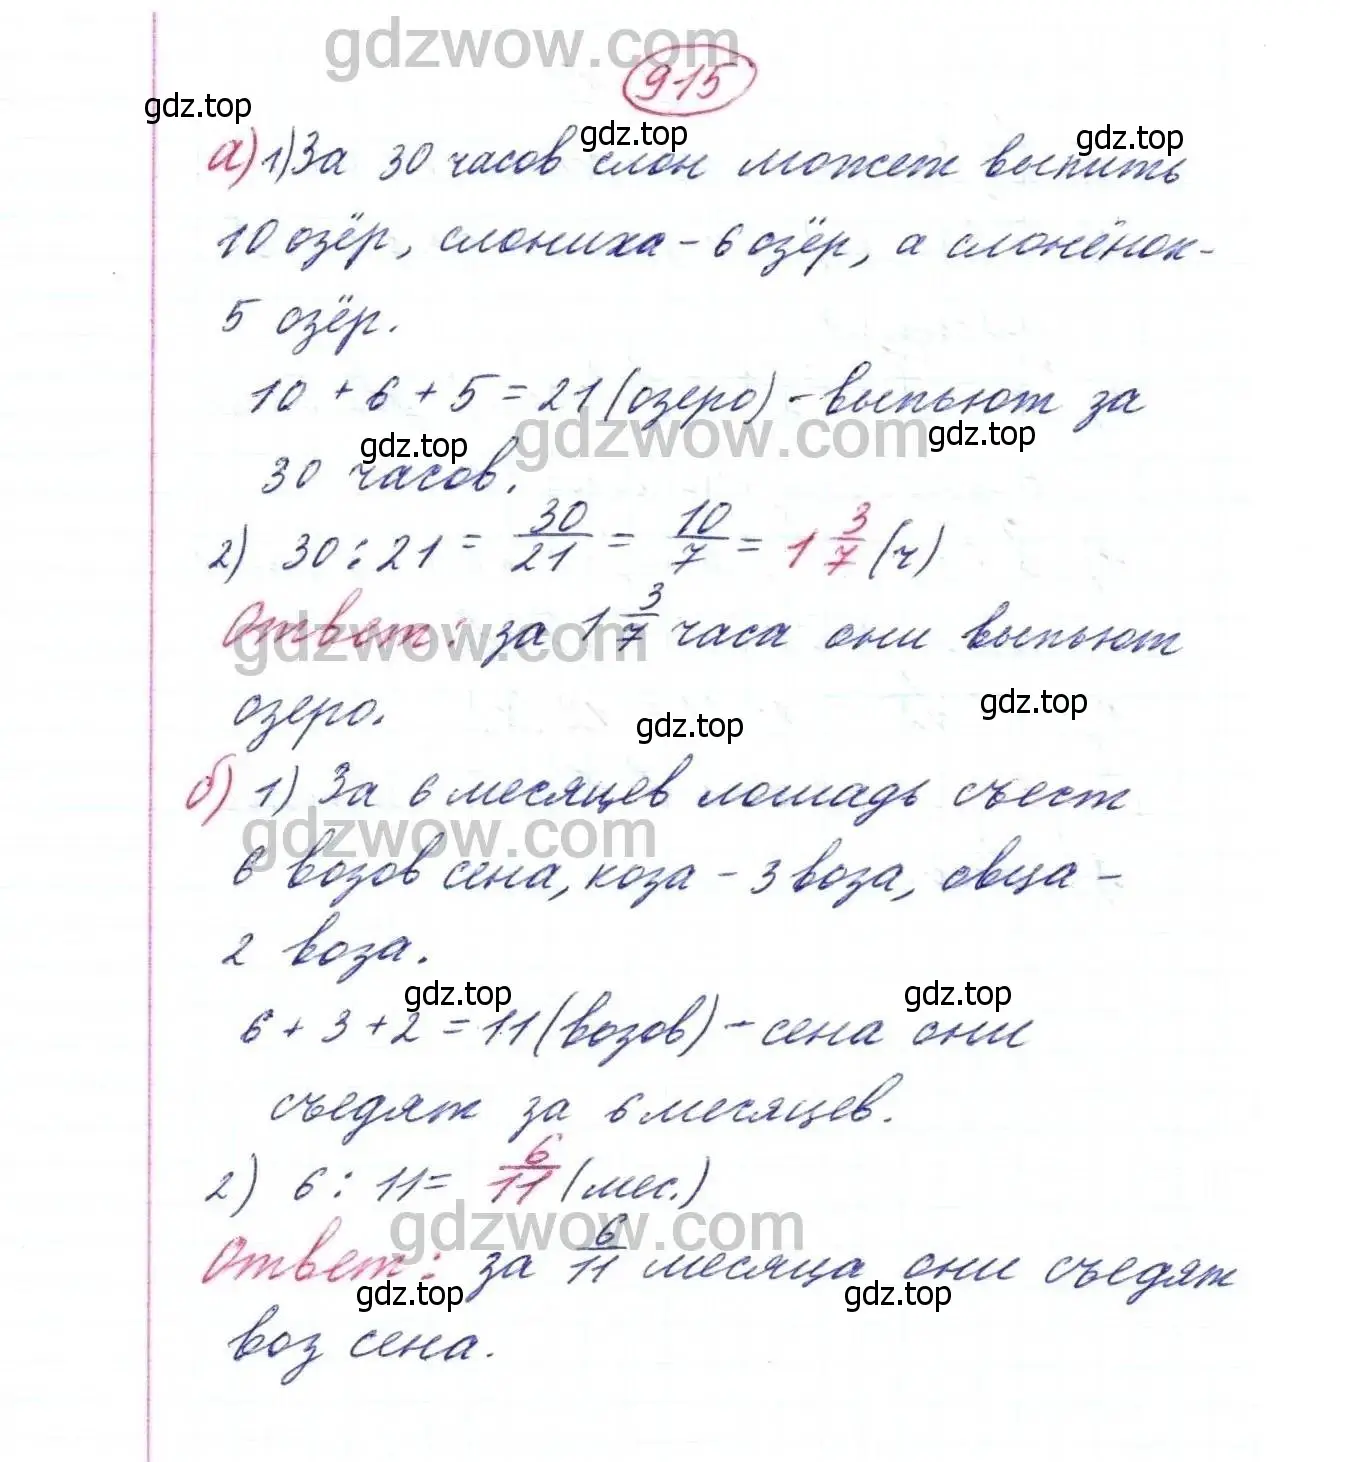 gdzwow.com
915
gdz.top
gdz.top
gdz.top
а) 1) За 30 часов слон может выпить
10 озёр, слониха - 6 озёр, а слонёнок -
5 озёр.
10 + 6 + 5 = 21 (озеро) - выпьют за
gdzwow.com
gdz.top
gdz.top
30 часов.
2) 30 : 21 = 30/21 = 10/7 = 1 3/7 (ч)
Ответ: за 1 3/7 часа они выпьют
gdzwow.com
озеро.
gdz.top
gdz.top
б) 1) За 6 месяцев лошадь съест
gdzwow.com
6 возов сена, коза - 3 воза, овца -
2 воза.
gdz.top
gdz.top
6 + 3 + 2 = 11 (возов) - сена они
съедят за 6 месяцев.
2) 6 : 11 = 6/11 (мес.)
gdzwow.com
Ответ: за 6/11 месяца они съедят
gdz.top
gdz.top
воз сена.